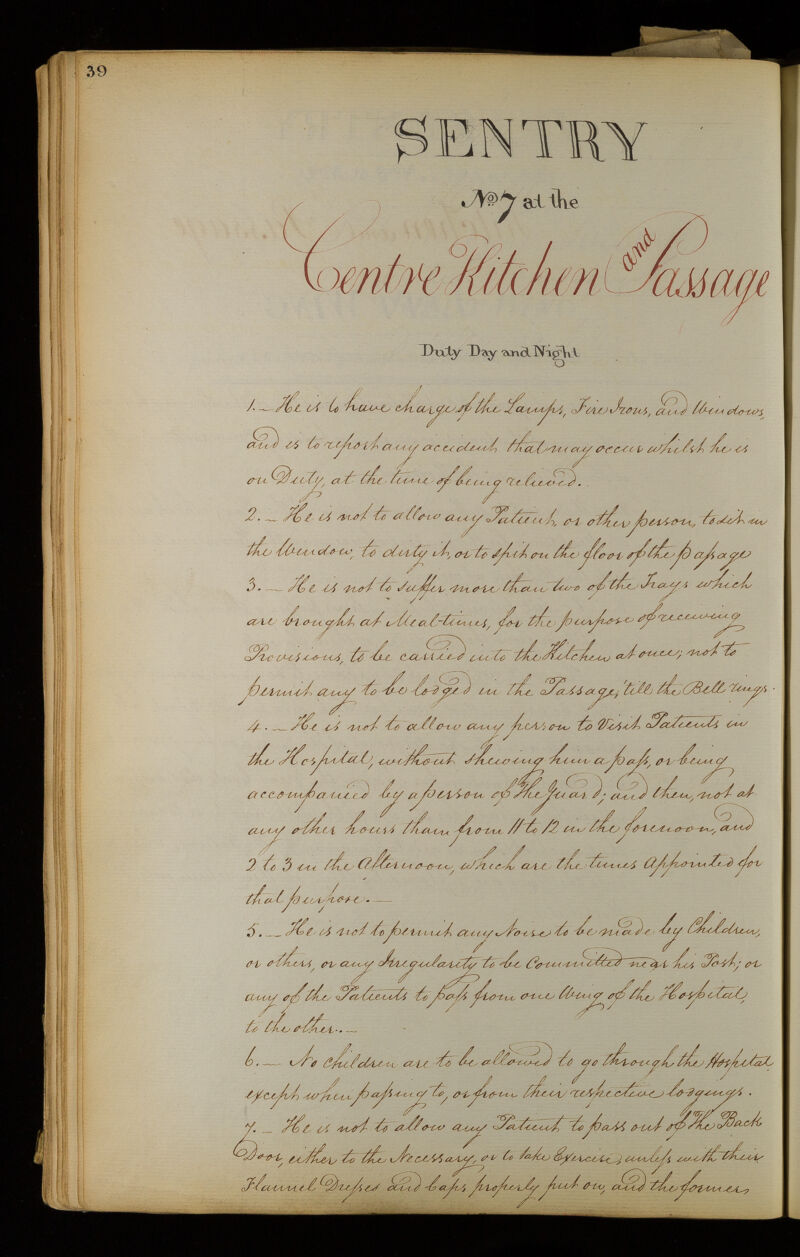 39
SENTRY
No 7 at the
Centre Kitchen and Passage
Duty Day and Night
1. — He is to have charge of the Lamps, Fire Irons, and Windows,
and is to report any accident that may occur whilst he is
on Duty, at the time of being relieved.
2. — He is not to allow any Patient, or other person, to sit in
the Window, to dirty it, or to spit on the floor of the passage
3. — He is not to suffer more than two of the Trays which
are brought at Meal-times, for the purpose of receiving
Provisions, to be carried into the Kitchen at once; not to
permit any to be lodged in the Passage, 'till the Bell rings.
4. — He is not to allow any person to Visit Patients in
the Hospital, without shewing him a pass, or being
accompanied by a person of The Guard; and then, not at
any other hours than from 11 to 12 in the forenoon, and
2 to 3 in the Afternoon, which are the times appointed for
that purpose. —
5. — He is not to permit any Noise to be made by Children,
or others, or any Irregularity to be Committed near his Post; or
any of the Patients to pass from one Wing of the Hospital,
to the other. —
6. — No Children are to be allowed to go through the Hospital
except when passing to, or from their respective lodgings.
7. — He is not to allow any Patient to pass out of The Back
Door, either to the Necessary, or to take Exercise, unless with their
Flannel Dresses and Caps properly put on, and the former